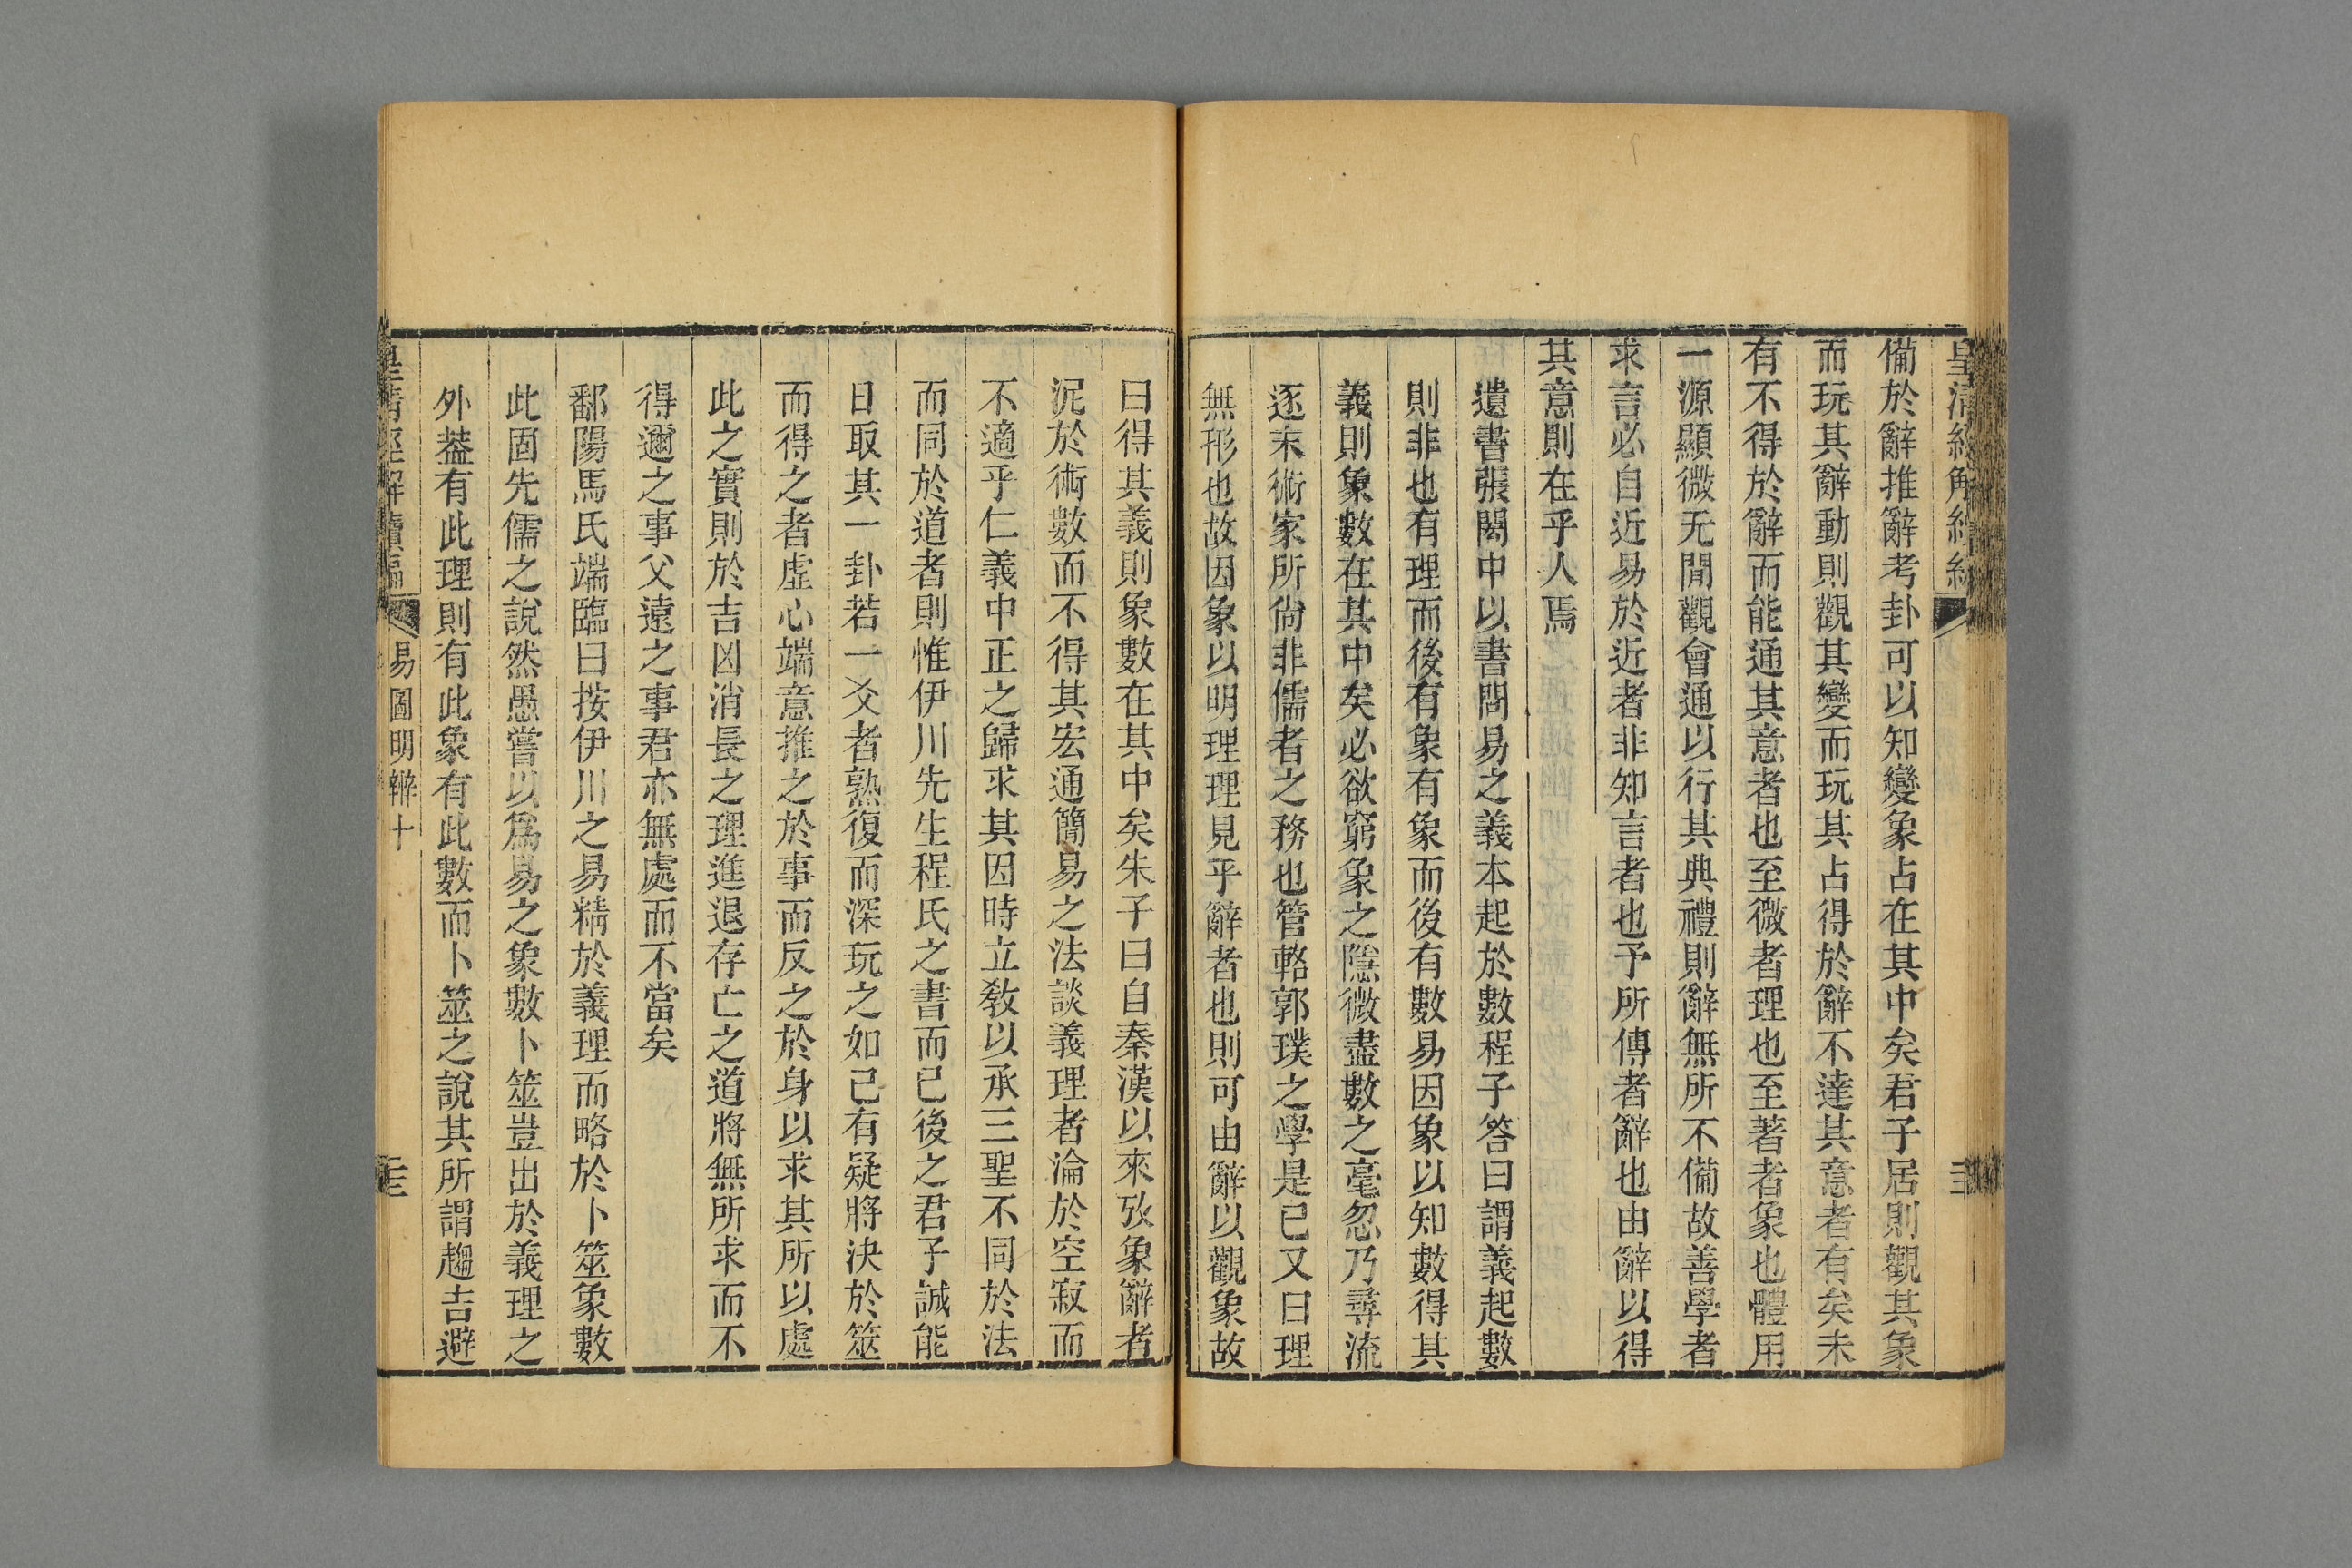 備於辭推辭考卦可以知變象占在其中矣君子居則觀其象
而玩其辭動則觀其變而玩其占得於辭不達其意者有矣未
有不得於辭而能通其意者也至微者理也至著者象也體用
一源顯微无閒觀會通以行其典禮則辭無所不備故善學者
求言必自近易於近者非知言者也予所傳者辭也由辭以得
其意則在乎人焉
遺書張閎中以書問易之義本起於數程子答曰謂義起數
則非也有理而後有象有象而後有數易因象以知數得其
義則象數在其中矣必欲窮象之隱微盡數之毫忽乃尋流
逐末術家所尙非儒者之務也管輅郭璞之學是已又曰理
無形也故因象以明理理見乎辭者也則可由辭以觀象故
曰得其義則象數在其中矣朱子曰自秦漢以來攷象辭者
泥於術數而不得其宏通簡易之法談義理者淪於空寂而
不適乎仁義中正之歸求其因時立敎以承三聖不同於法
而同於道者則惟伊川先生程氏之書而已後之君子誠能
日取其一卦若一爻者熟復而深玩之如己有疑將決於筮
而得之者虛心端意推之於事而反之於身以求其所以處
此之實則於吉凶消長之理進退存亡之道將無所求而不
得邇之事父遠之事君亦無處而不當矣
鄱陽馬氏端臨曰按伊川之易精於義理而略於卜筮象數
此固先儒之說然愚嘗以爲易之象數卜筮豈出於義理之
外葢有此理則有此象有此數而卜筮之說其所謂趨吉避
皇清經解續編
易圖明辨十